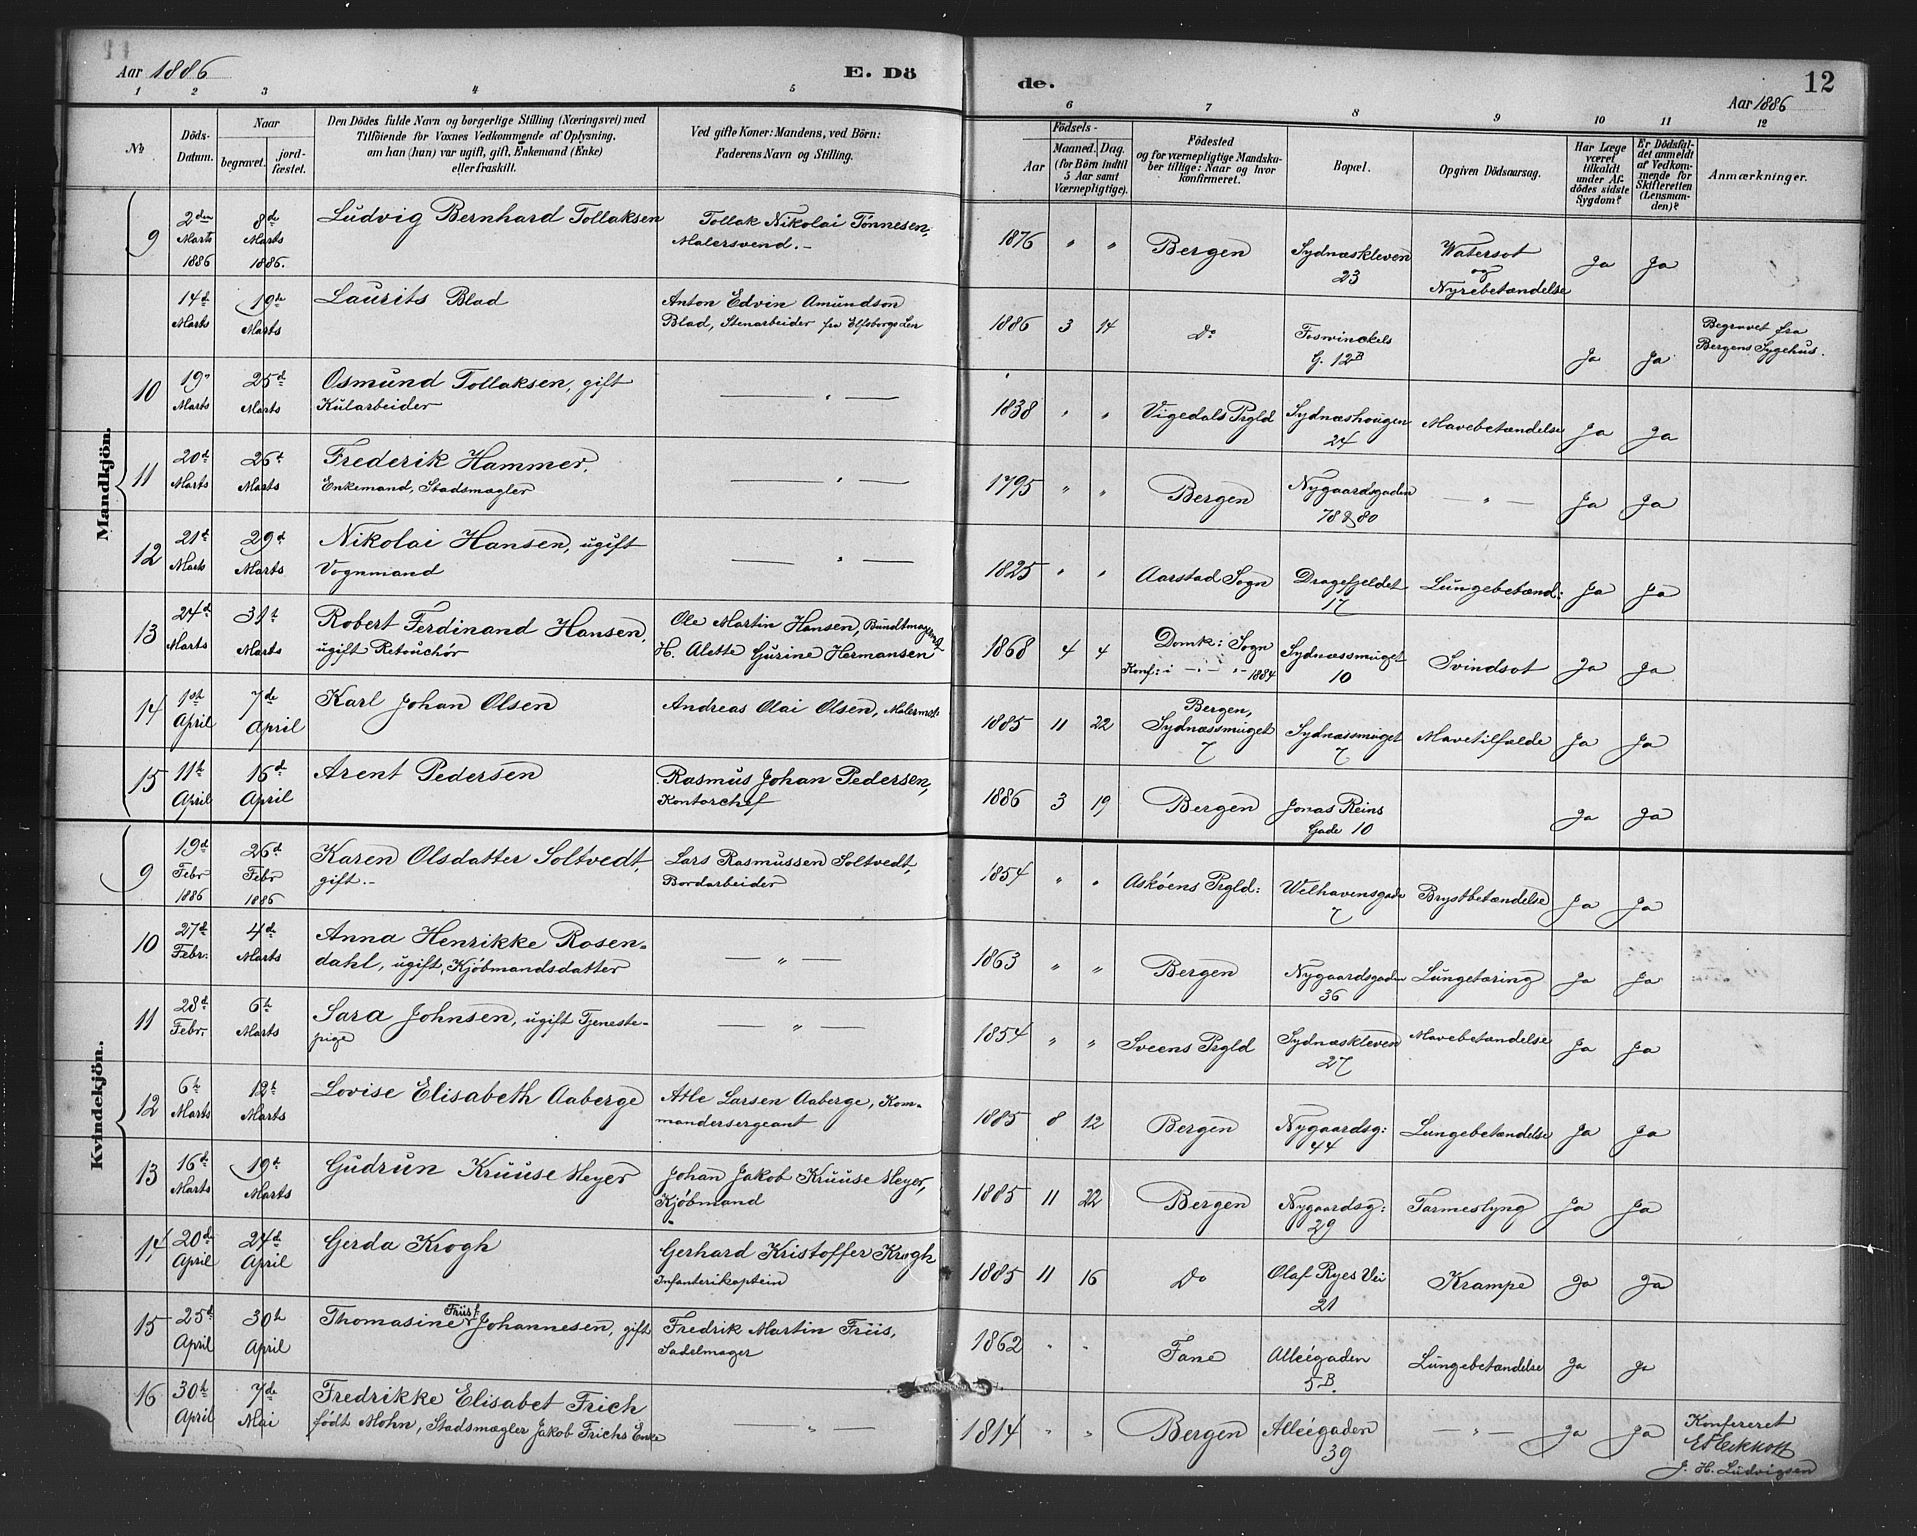 Aar 1886
E. Dö
de.
12
Aar 1886
1 2 3 4 5 6 7 8 9 10 11 12
№
Döds-Datum.
Naar
begravet.
jordfæstet.
Den Dödes fulde Navn og borgerlige Stilling (Næringsvei) med
Tilföiende for Voxnes Vedkommende af Oplysning,
om han (hun) var ugift, gift, Enkemand (Enke)
eller fraskilt.
Ved gifte Koner: Mandens, ved Börn:
Faderens Navn og Stilling.
Födsels-
Aar
Maaned. Dag.
(for Börn indtil
5 Aar samt
Værnepligtige).
Födested
og for værnepligtige Mandskaber tillige: Naar og hvor
konfirmeret.
Bopæl.
Opgiven Dödsaarsag.
Har Læge
været
tilkaldt
under Afdödes sidste
Sygdom?
Er Dödsfaldet anmeldt
af Vedkommende for
Skifteretten
(Lensmanden)?
Anmærkninger.
Mandkjön.
9 2den Marts 1886 8de Marts 1886. Ludvig Bernhard Tollaksen Tollak Nikolai Tønnesen, Malersvend.- 1876 " " Bergen Sydnæskleven 23 Watersot og Nyrebetændelse Ja Ja
14d Marts 19de Marts Laurits Blad Anton Edvin Amundson Blad, Stenarbeider fra Elfsborgs Len 1886 3 14 Do Foswinckels G. 12B Ja Ja Begravet fra Bergens Sygehus.
10 19 Marts 25d Marts Osmund Tollaksen, gift Kularbeider — " — 1838 " " Vigedals Prgld Sydnæshougen 24 Mavebetændelse Ja Ja
11 20d Marts 26d Marts Frederik Hammer, Enkemand, Stadsmægler — " — 1795 " " Bergen Nygaardsgaden 78 & 80 — " — Ja Ja
12 21d Marts 29d Marts Nikolai Hansen, ugift Vognmand — " — 1825 " " Aarstad Sogn Dragefjeldet 17 Lungebetænd: Ja Ja
13 24d Marts 31t Marts Robert Ferdinand Hansen, ugift Retouchör Ole Martin Hansen, Bundtmager og H. Alette Gurine Hermansen 1868 4 4 Domk: Sogn Konf: i -"- "- 1884 Sydnæssmuget 10 Svindsot Ja Ja
14 1st April 7de April Karl Johan Olsen Andreas Olai Olsen, Malermst: 1885 11 22 Bergen, Sydnæssmuget 7 Sydnæssmuget 7 Mavetilfælde Ja Ja
15 11te April 16d April Arent Pedersen Rasmus Johan Pedersen, Kontorchef 1886 3 19 Bergen Jonas Reins Gade 10 Ja Ja
Kvindekjön.
9 19d Febr 1886 26d Febr 1886 Karen Olsdatter Soltvedt, gift.- Lars Rasmussen Soltvedt, Bordarbeider 1854 " " Askøens Prgld: Welhavensgade 7 Brystbetændelse Ja Ja
10 27d Febr: 4de Marts Anna Henrikke Rosendahl, ugift, Kjøbmandsdatter — " — 1863 " " Bergen Nygaardsgaden 36 Lungetæring Ja Ja
11 28d Febr. 6te Marts Sara Johnsen, ugift Tjenestepige — " — 1854 " " Sveens Prgld Sydnæskleven 27 Mavebetændelse Ja Ja
12 6te Marts 12te Marts Lovise Elisabeth Aaberge Atle Larsen Aaberge, Kommandersergeant 1885 8 12 Bergen Nygaardsg: 44 Lungebetændelse Ja Ja
13 16d Marts 19d Marts Gudrun Kruuse Meyer Johan Jakob Kruuse Meyer, Kjøbmand 1885 11 22 Bergen Nygaardsg: 29 Tarmeslyng Ja Ja
14 20de April 24d April Gerda Krogh Gerhard Kristoffer Krogh Infanterikaptein 1885 11 16 Do Olaf Ryes Vei 21 Krampe Ja Ja
15 25d April 30te April Thomasine Friis f. Johannesen, gift Fredrik Martin Friis, Sadelmager 1862 " " Fane Alleegaden 5B. Lungebetændelse Ja Ja
16 30te April 7de Mai Fredrikke Elisabet Frich født Mohn, Stadsmægler Jakob Frichs Enke — " — 1814 " " Bergen Alleegaden 39 — " — Ja Ja Konfereret
J. H. Ludvigsen